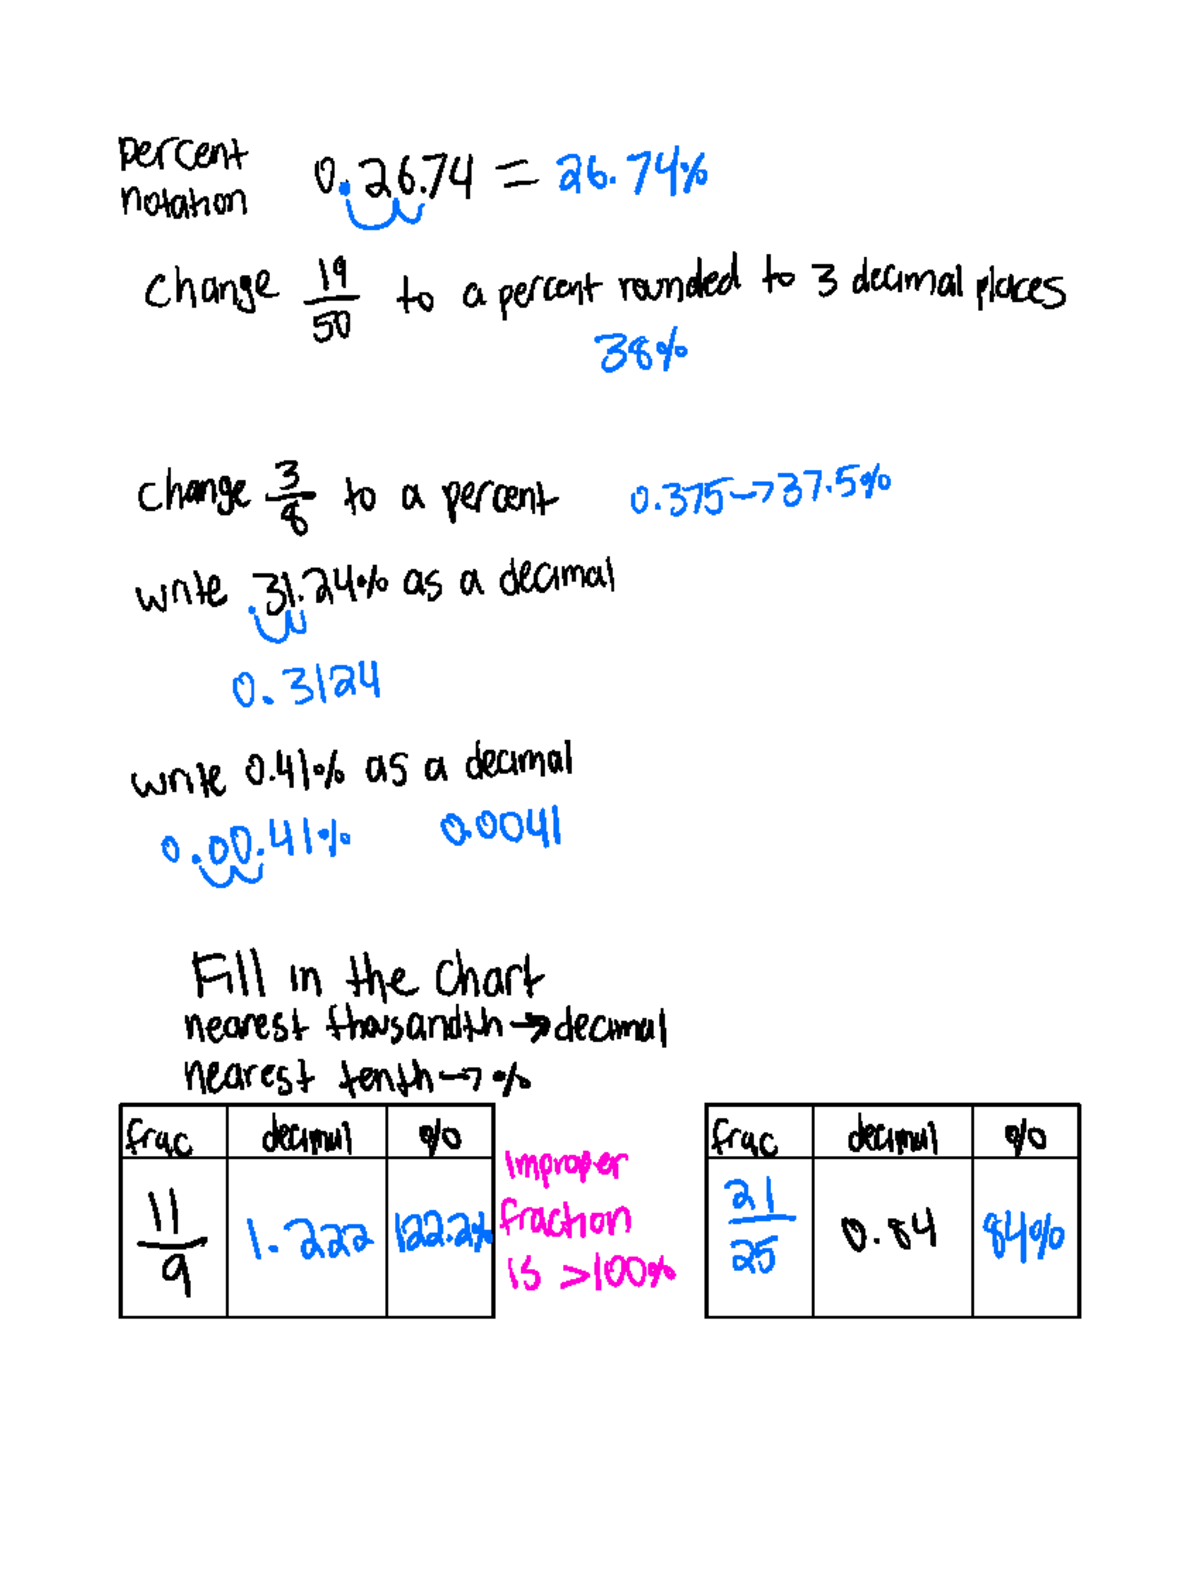 percent
notation
0.26.74 = 26.74%
change 19/50 to a percent rounded to 3 decimal places
38%
change 3/8 to a percent 0.375→37.5%
write .31.24% as a decimal
0.3124
write 0.41% as a decimal
0.00.41% 0.0041
Fill in the chart
nearest thousandth → decimal
nearest tenth → %
frac decimal %
11/9 1.222 122.2%
Improper
fraction
is >100%
frac decimal %
21/25 0.84 84%